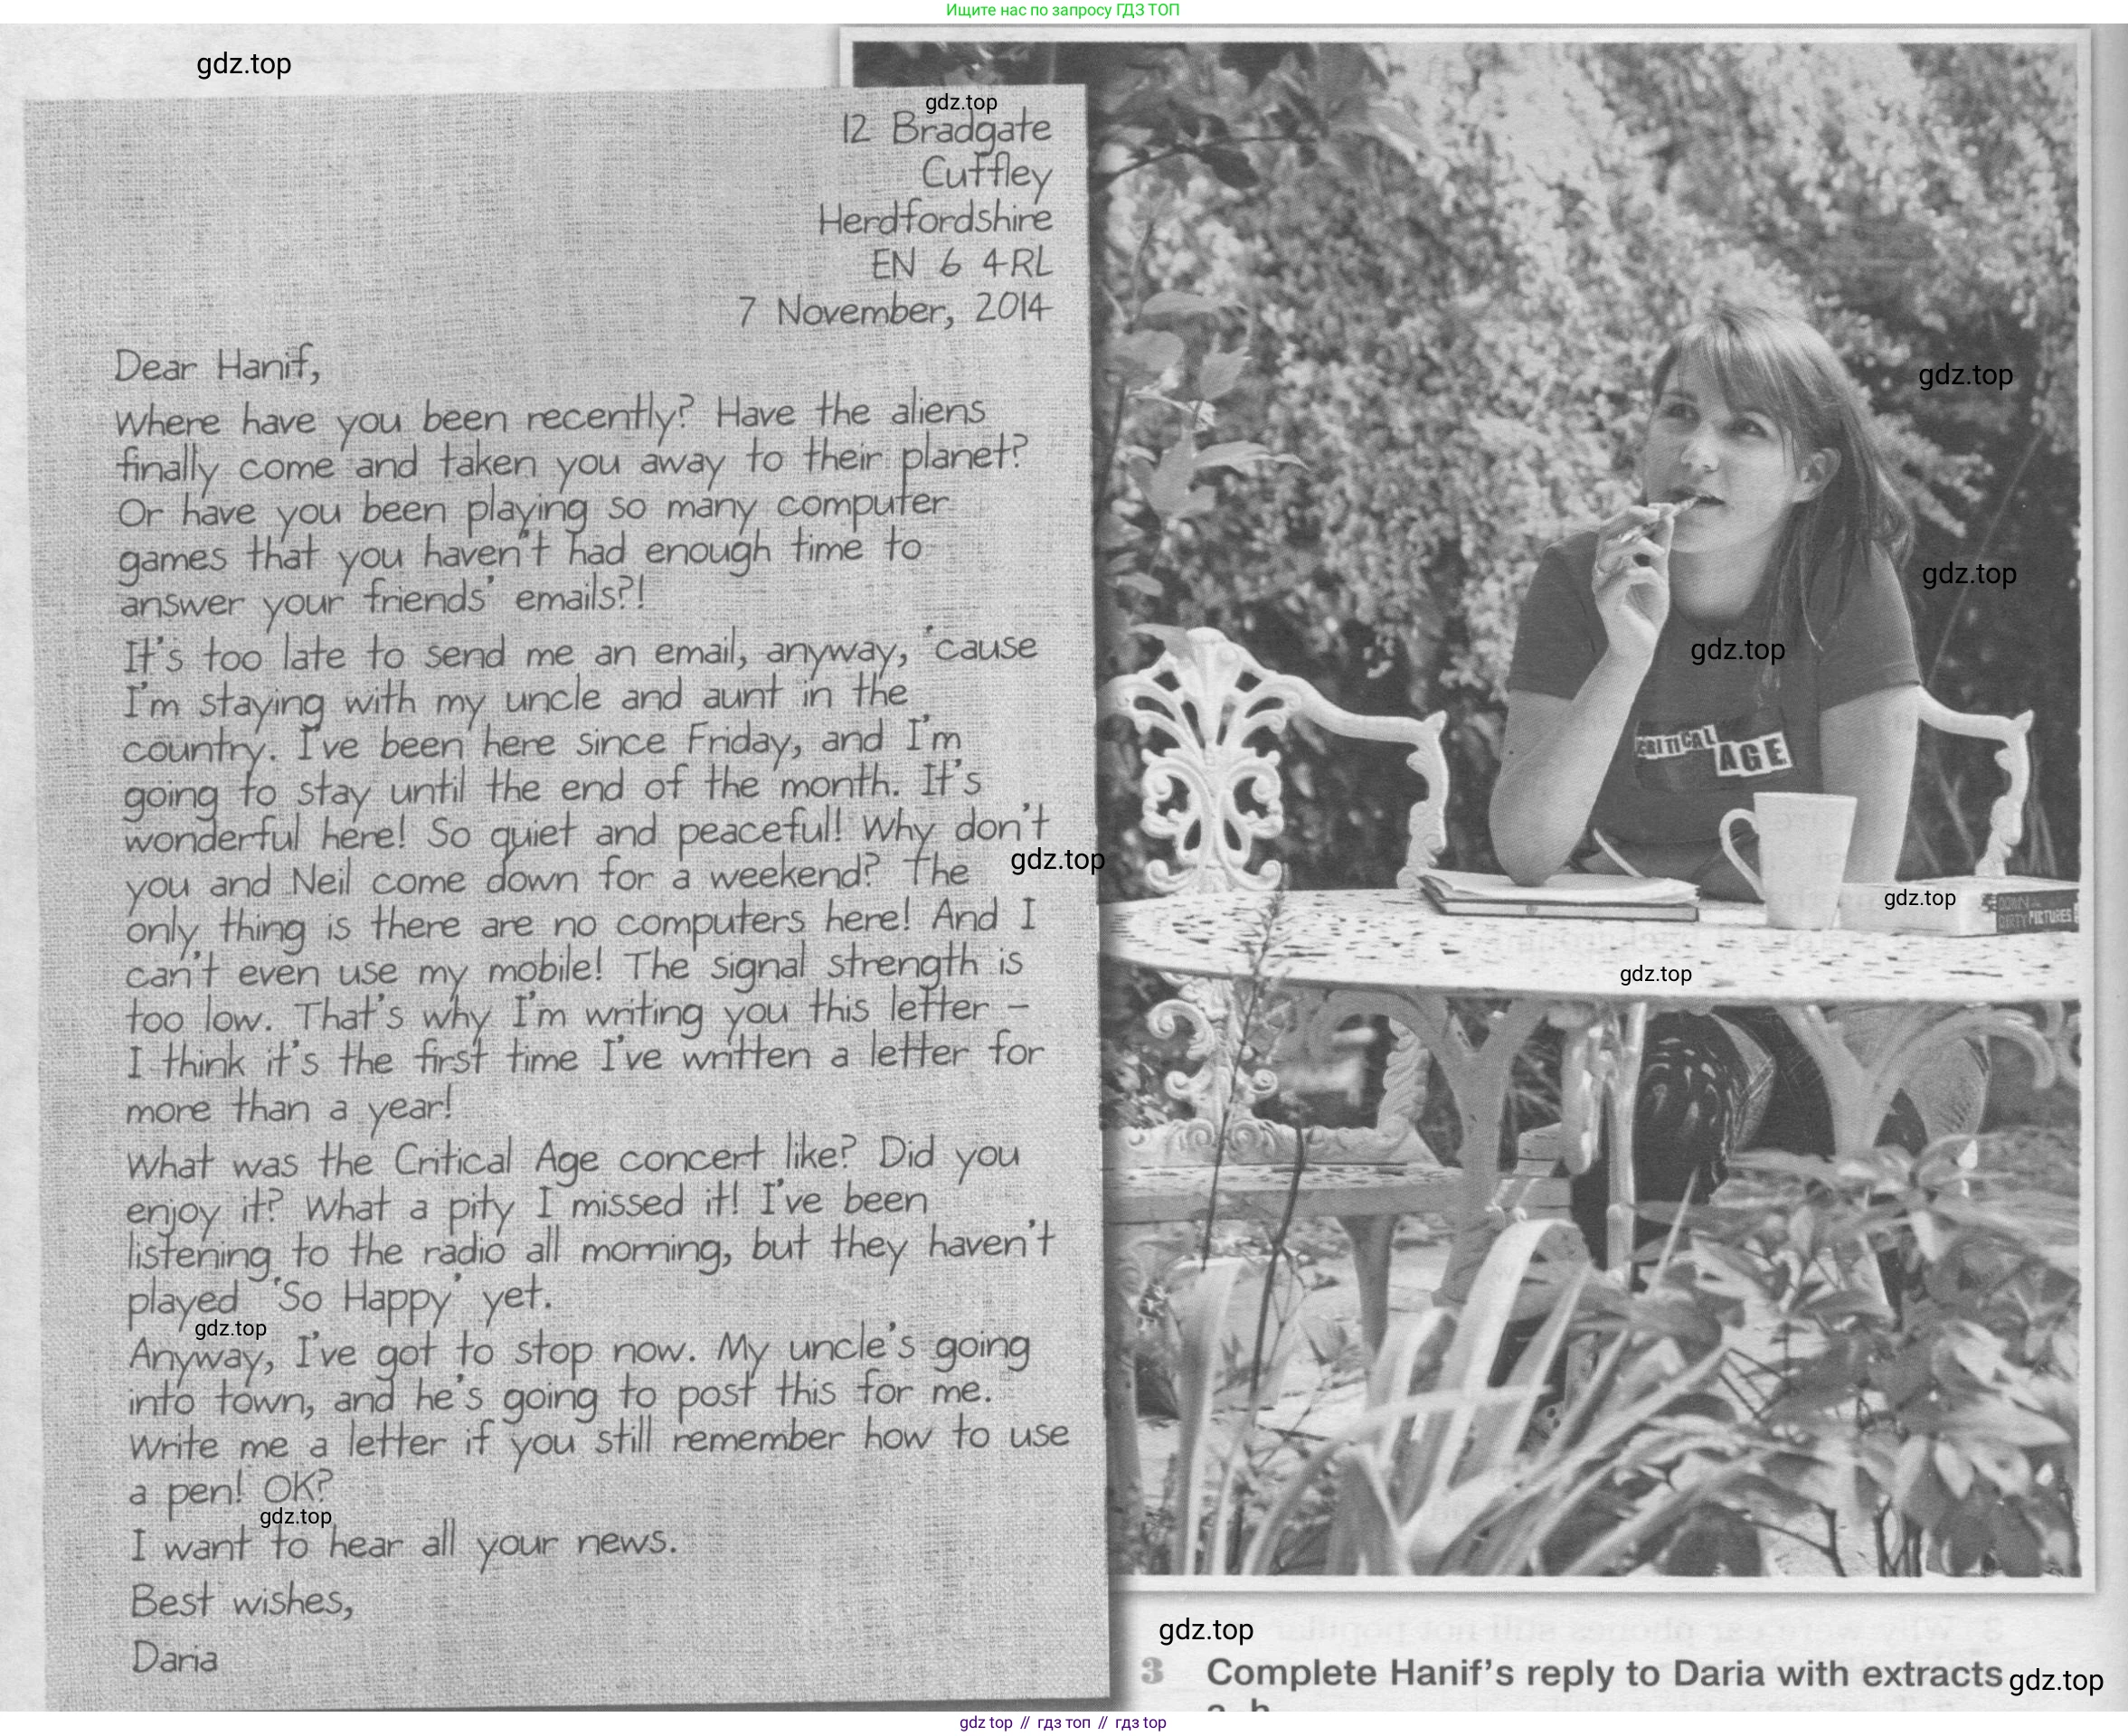 Ищите нас по запросу ГДЗ ТОП
gdz.top
gdz.top
12 Bradgate
Cuffley
Herdfordshire
EN 6 4RL
7 November, 2014
Dear Hanif,
Where have you been recently? Have the aliens
finally come and taken you away to their planet?
Or have you been playing so many computer
games that you haven't had enough time to
answer your friends' emails?!
It's too late to send me an email, anyway, 'cause
I'm staying with my uncle and aunt in the
country. I've been here since Friday, and I'm
going to stay until the end of the month. It's
wonderful here! So quiet and peaceful! Why don't
you and Neil come down for a weekend? The
only thing is there are no computers here! And I
can't even use my mobile! The signal strength is
too low. That's why I'm writing you this letter –
I think it's the first time I've written a letter for
more than a year!
What was the Critical Age concert like? Did you
enjoy it? What a pity I missed it! I've been
listening to the radio all morning, but they haven't
played 'So Happy' yet.
gdz.top
Anyway, I've got to stop now. My uncle's going
into town, and he's going to post this for me.
Write me a letter if you still remember how to use
a pen! OK?
gdz.top
I want to hear all your news.
Best wishes,
Daria
gdz.top
gdz.top
gdz.top
CRITICAL
AGE
gdz.top
gdz.top
DIRTY PICTURES
gdz.top
gdz.top
3 Complete Hanif's reply to Daria with extracts
gdz.top
gdz top // гдз топ // gdz top